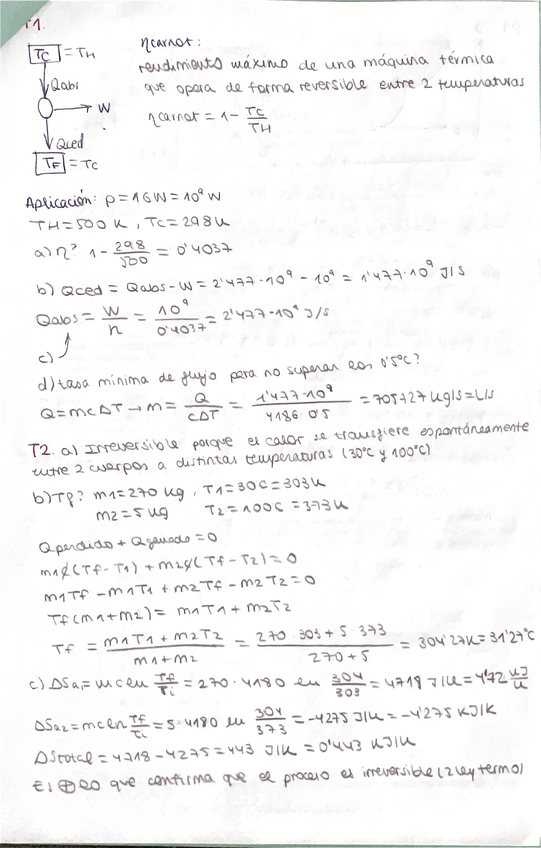 T1.
TC = TH
Qabs
W
Qced
TF = TC
ηcarnot:
rendimiento máximo de una máquina térmica
que opera de forma reversible entre 2 temperaturas
ηcarnot = 1 - TC/TH
Aplicación: P = 1GW = 10⁹ W
TH = 500 K, TC = 298 K
a) η? 1 - 298/500 = 0'4037
b) Qced = Qabs - W = 2'477·10⁹ - 10⁹ = 1'477·10⁹ J/s
Qabs = W/n = 10⁹/0'4037 = 2'477·10⁹ J/s
c)
d) tasa mínima de flujo para no superar los 0'5°C?
Q = mcΔT → m = Q/cΔT = 1'477·10⁹/4186·0'5 = 705727 kg/s = L/s
T2. a) Irreversible porque el calor se transfiere espontáneamente
entre 2 cuerpos a distintas temperaturas (30°C y 100°C)
b) Tf? m1 = 270 kg, T1 = 30C = 303K
m2 = 5 kg T2 = 100C = 373K
Qperdido + Qganado = 0
m1c(Tf - T1) + m2c(Tf - T2) = 0
m1Tf - m1T1 + m2Tf - m2T2 = 0
Tf(m1 + m2) = m1T1 + m2T2
Tf = m1T1 + m2T2/m1 + m2 = 270·303 + 5·373/270 + 5 = 304'27K = 31'27°C
c) ΔSa1 = mc ln Tf/Ti = 270·4180 ln 304/303 = 4718 J/K = 4'72 kJ/K
ΔSa2 = mc ln Tf/Ti = 5·4180 ln 304/373 = -4275 J/K = -4'275 KJ/K
ΔStotal = 4718 - 4275 = 443 J/K = 0'443 KJ/K
Es ⊕ lo que confirma que el proceso es irreversible (2 ley termo)